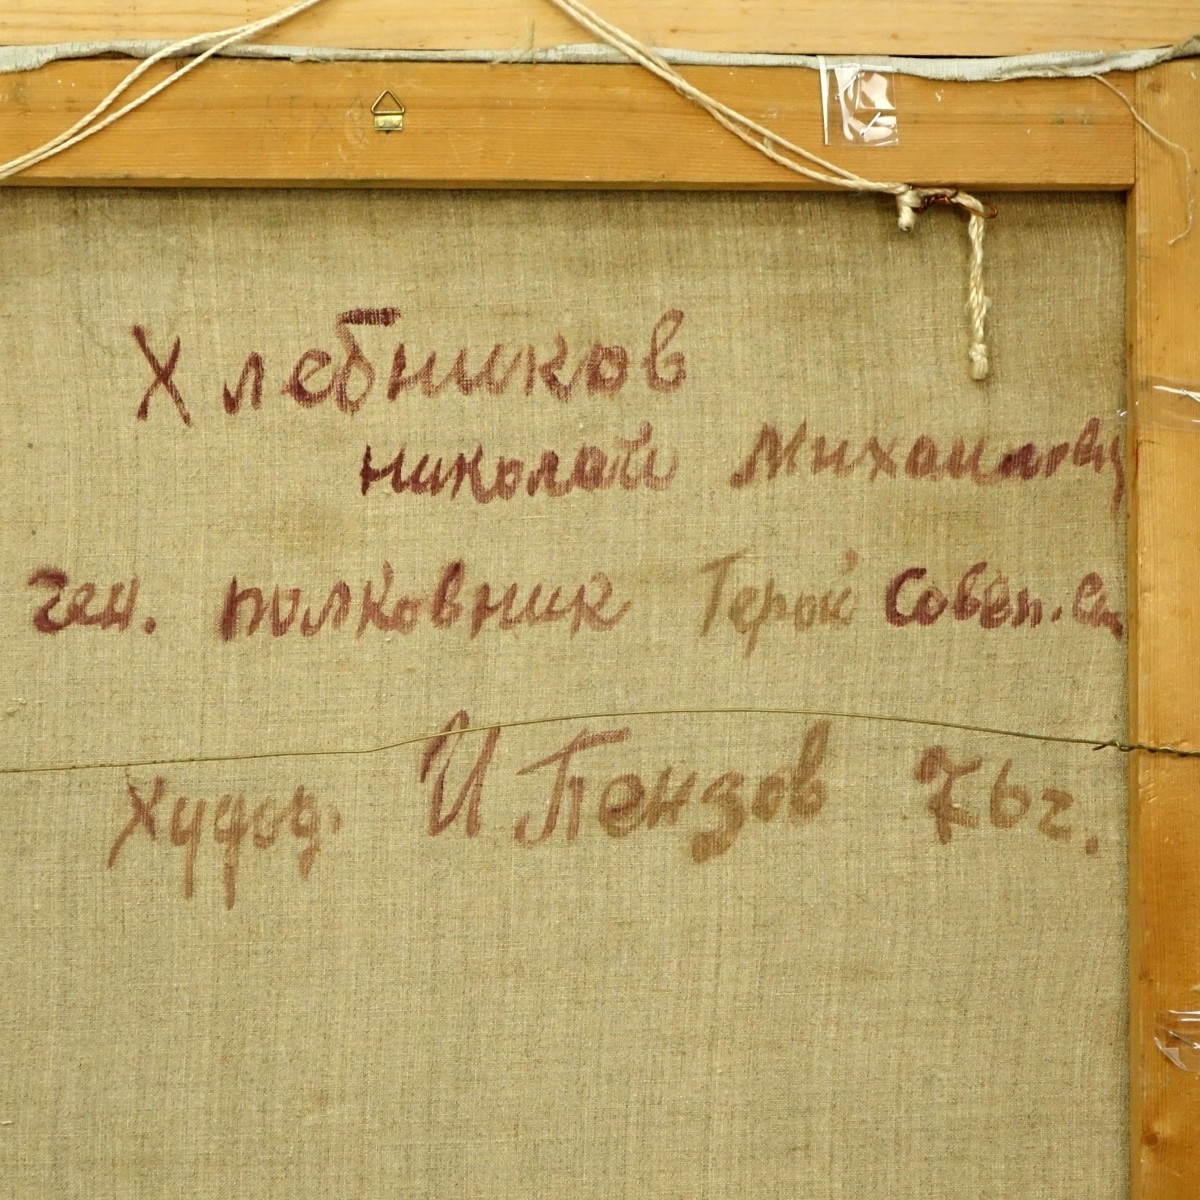 Хлебников
Николай Михайлович
ген. полковник Герой Совет. Со
Худож. И Пензов 76г.